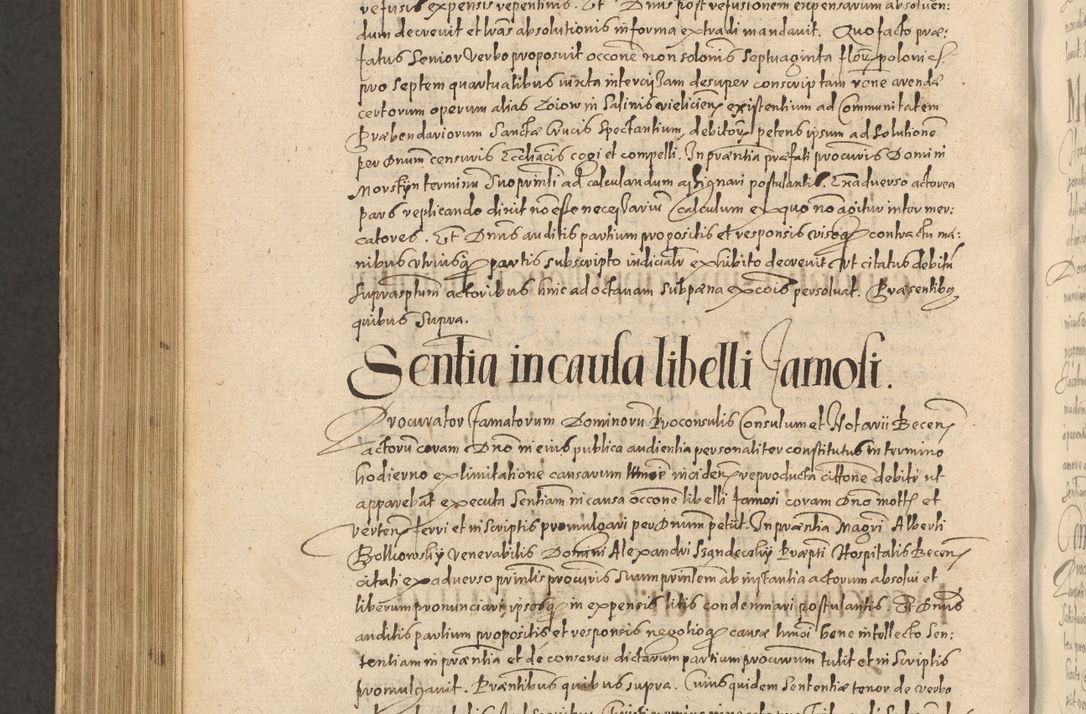 refusis expensis repentinis. Et Dnus post refusionem expensarum absoluen:
dum decreuit et lras absolutionis in forma extradi mandauit. Quo facto præ:
fatus Senior Verbo proposuit occone non solonis Septuaginta flor polonic
pro Septem quartualibus iuxta intercisam desuper conscriptam rone arendæ
certorum operum alias Zoiow in Salinis vieliciens existentium ad Communitatem
Præbendariorum Sanctæ Crucis Spectantium, debitorum petens ipsum ad Solutione
per Dnum censuris Eccliacis cogi et compelli. In præntia præfati procuris Domini
Morstyn terminu Suo printi ad calculandum assignari postulantis. Ex aduerso actorea
pars replicando dixit no esse necessariu Calculum ex quo no agitur inter mer:
catores. Et Dnus auditis partium propositis et responsis visoq contractu ma:
nibus vtriusq partis subscripto iudicialr exhibito decreuit vt citatus debitu
suprasptum actoribus hinc ad octauam sub pæna excois persoluat. Præsentibq
quibus Supra.
Sentia in causa libelli famosi.
Procurator famatorum Dominoru Proconsulis Consulum et Notarii Becen
actoru coram Dno in eius publica audientia personaliter constitutus in termino
hodierno ex limitatione causarum inciden reproducta cittone debite ut
apparebat executa Sentiam in causa occone libelli famosi coram Dno mott et
verten ferri et in Scriptis promulgari per Dnum petiit. In præntia Magri Alberti
Bolkowsky Venerabilis Domini Alexandri Sandecsky Præpti Hospitalis Becen
citati ex aduerso printis procuris Suum printem ab instantia actorum absolui et
liberum pronunciari ipsosq in expensis litis condemnari postulantis. Et Dnus
auditis partium propositis et responsis negotioq causæ hmoi bene intellecto Sen:
tentiam in præntia et de consensu dictarum partium procurum tulit et in Scriptis
promulgauit. Præntibus quibus supra. Cuius quidem Sententiæ tenor de verbo